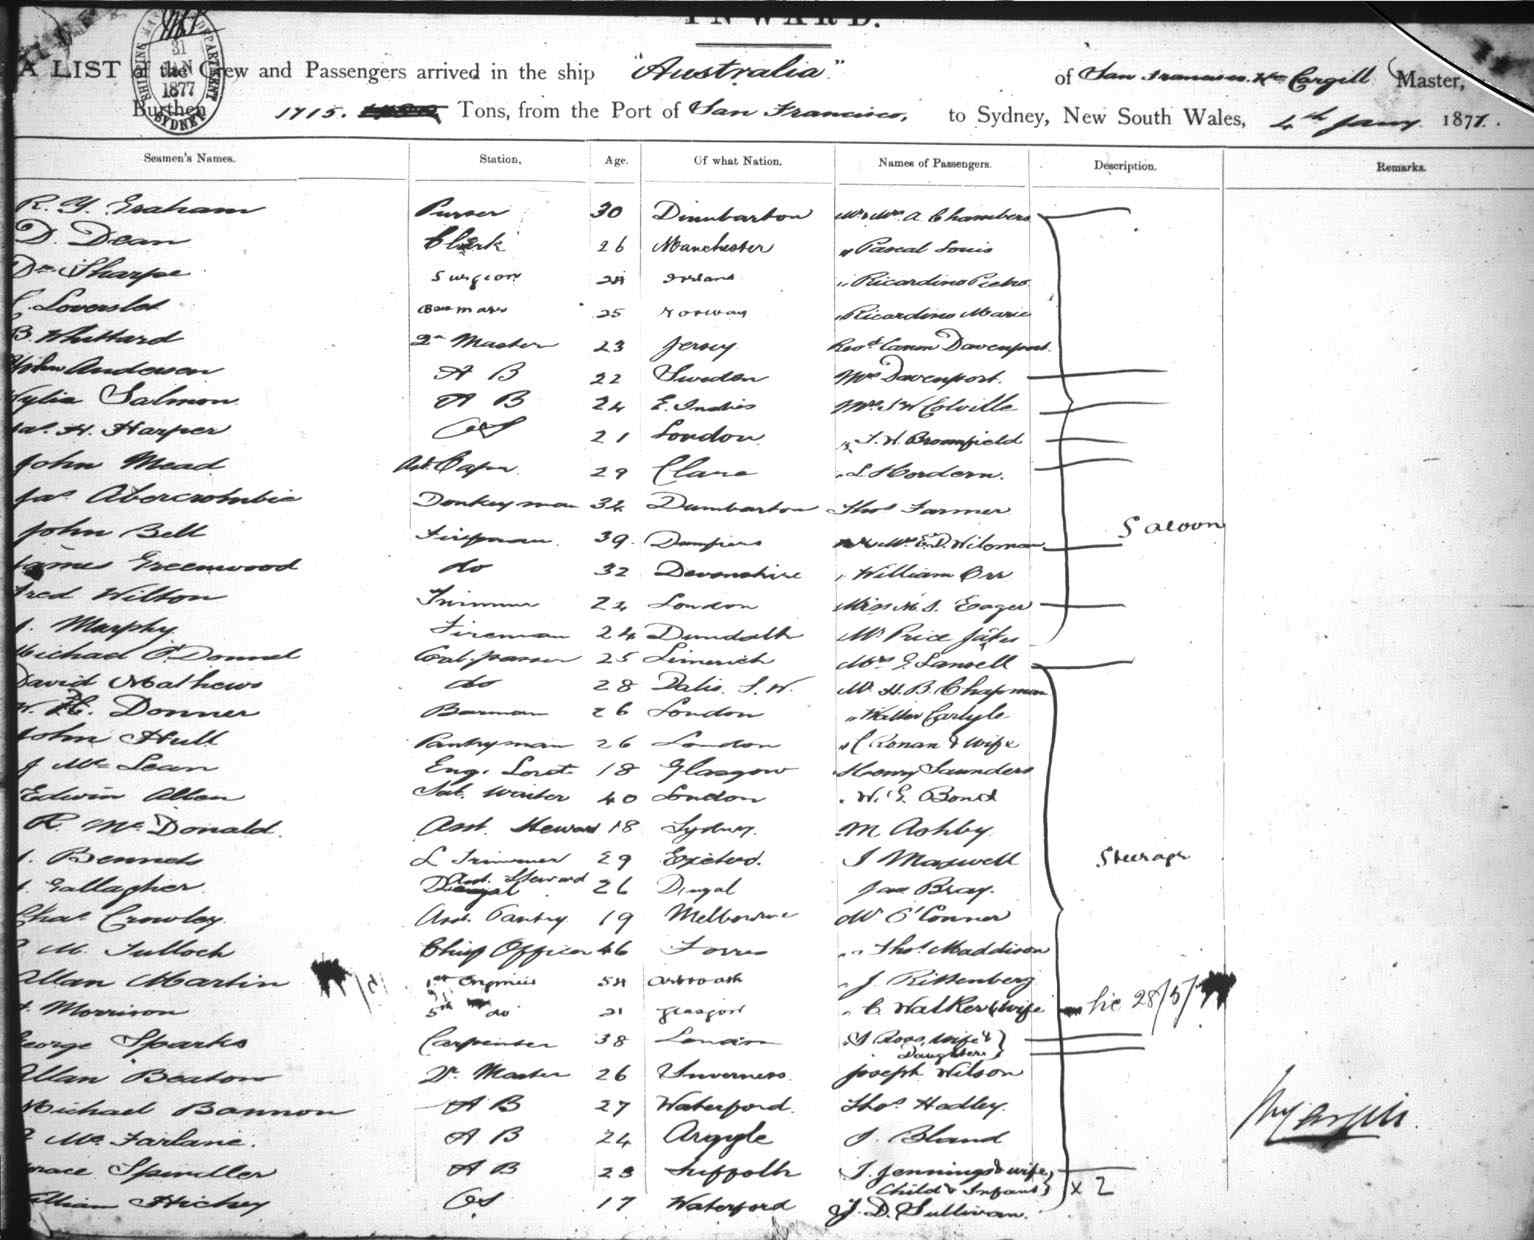 INWARD.
SHIPPING MASTER'S DEPARTMENT
31
JAN
1877
SYDNEY
A LIST of the Crew and Passengers arrived in the ship "Australia." of San Francisco. Wm Cargill Master,
Burthen 1715. Tons, from the Port of San Francisco, to Sydney, New South Wales, 4th Jany 1877.
Seamen's Names. Station, Age. Of what Nation. Names of Passengers. Description. Remarks.
R. Y. Graham Purser 30 Dumbarton Mr & Mrs A Chambers
D. Dean Clerk 26 Manchester " Pascal Louis
Dr Sharpe Surgeon Ireland " Ricardino Pietro
Norway 25 " Ricardino Marie
B. Whittard Qr Master 23 Jersey Revd Canon Davenport.
John Anderson A B 22 Sweden Mrs Davenport.
Salmon A B 24 E. Indies Mrs S W Colville
Jas. H. Harper OS 21 London " Bromfield
John Mead 29 Clare " L Hordern.
Jas Abercrombie Donkeyman 34 Dumbarton Thos Farmer
Saloon
John Bell Fireman. 39. Mr E. D.
James Greenwood do 32 Devonshire " William Orr
Fred Wilton Trimmer 24 London Miss Eager
J. Murphy Fireman 24 Dundalk Mr Price
Michael O'Donnel Coal-passer 25 Limerick Mrs G Lansell
David Mathews do 28 Mr H. B. Chapman
W. H. Donner Barman 26 London " Walter Carlyle
John Hull Pantryman 26 London " C Ronan & Wife
J McLean Eng. Storek. 18 Glasgow " Henry Saunders
Edwin Allen Sal. Waiter 40 London " W. G. Bond
R. McDonald. Asst. Steward 18 Sydney. M Ashby
J. Bennets L Trimmer 29 Exeter. J Maxwell
Steerage
Gallagher. Asst. Steward 26 Donegal Jas Bray.
Chas Crowley. Asst. Pantry. 19 Melbourne Mr O'Conner
J M. Tulloch Chief Officer 46 Forres " Thos Maddison
Allan Martin 1st Engineer 54 Arbroath " J Rittenberg
Morrison 5th do 21 Glasgow " C Walker & wife 28/5/
George Sparks Carpenter 38 London J Ross, wife &
Daughters
Allan Beaton Qr. Master 26 Inverness. Joseph Wilson
Michael Bannon A B 27 Waterford. Thos. Hadley.
McFarlane. A B 24 Argyle J. Bland
Horace Spindler A B 23 Suffolk J. Jennings & wife,
Child & Infant x 2
William Hickey OS 17 Waterford J. D. Sullivan.
Wm Cargill.